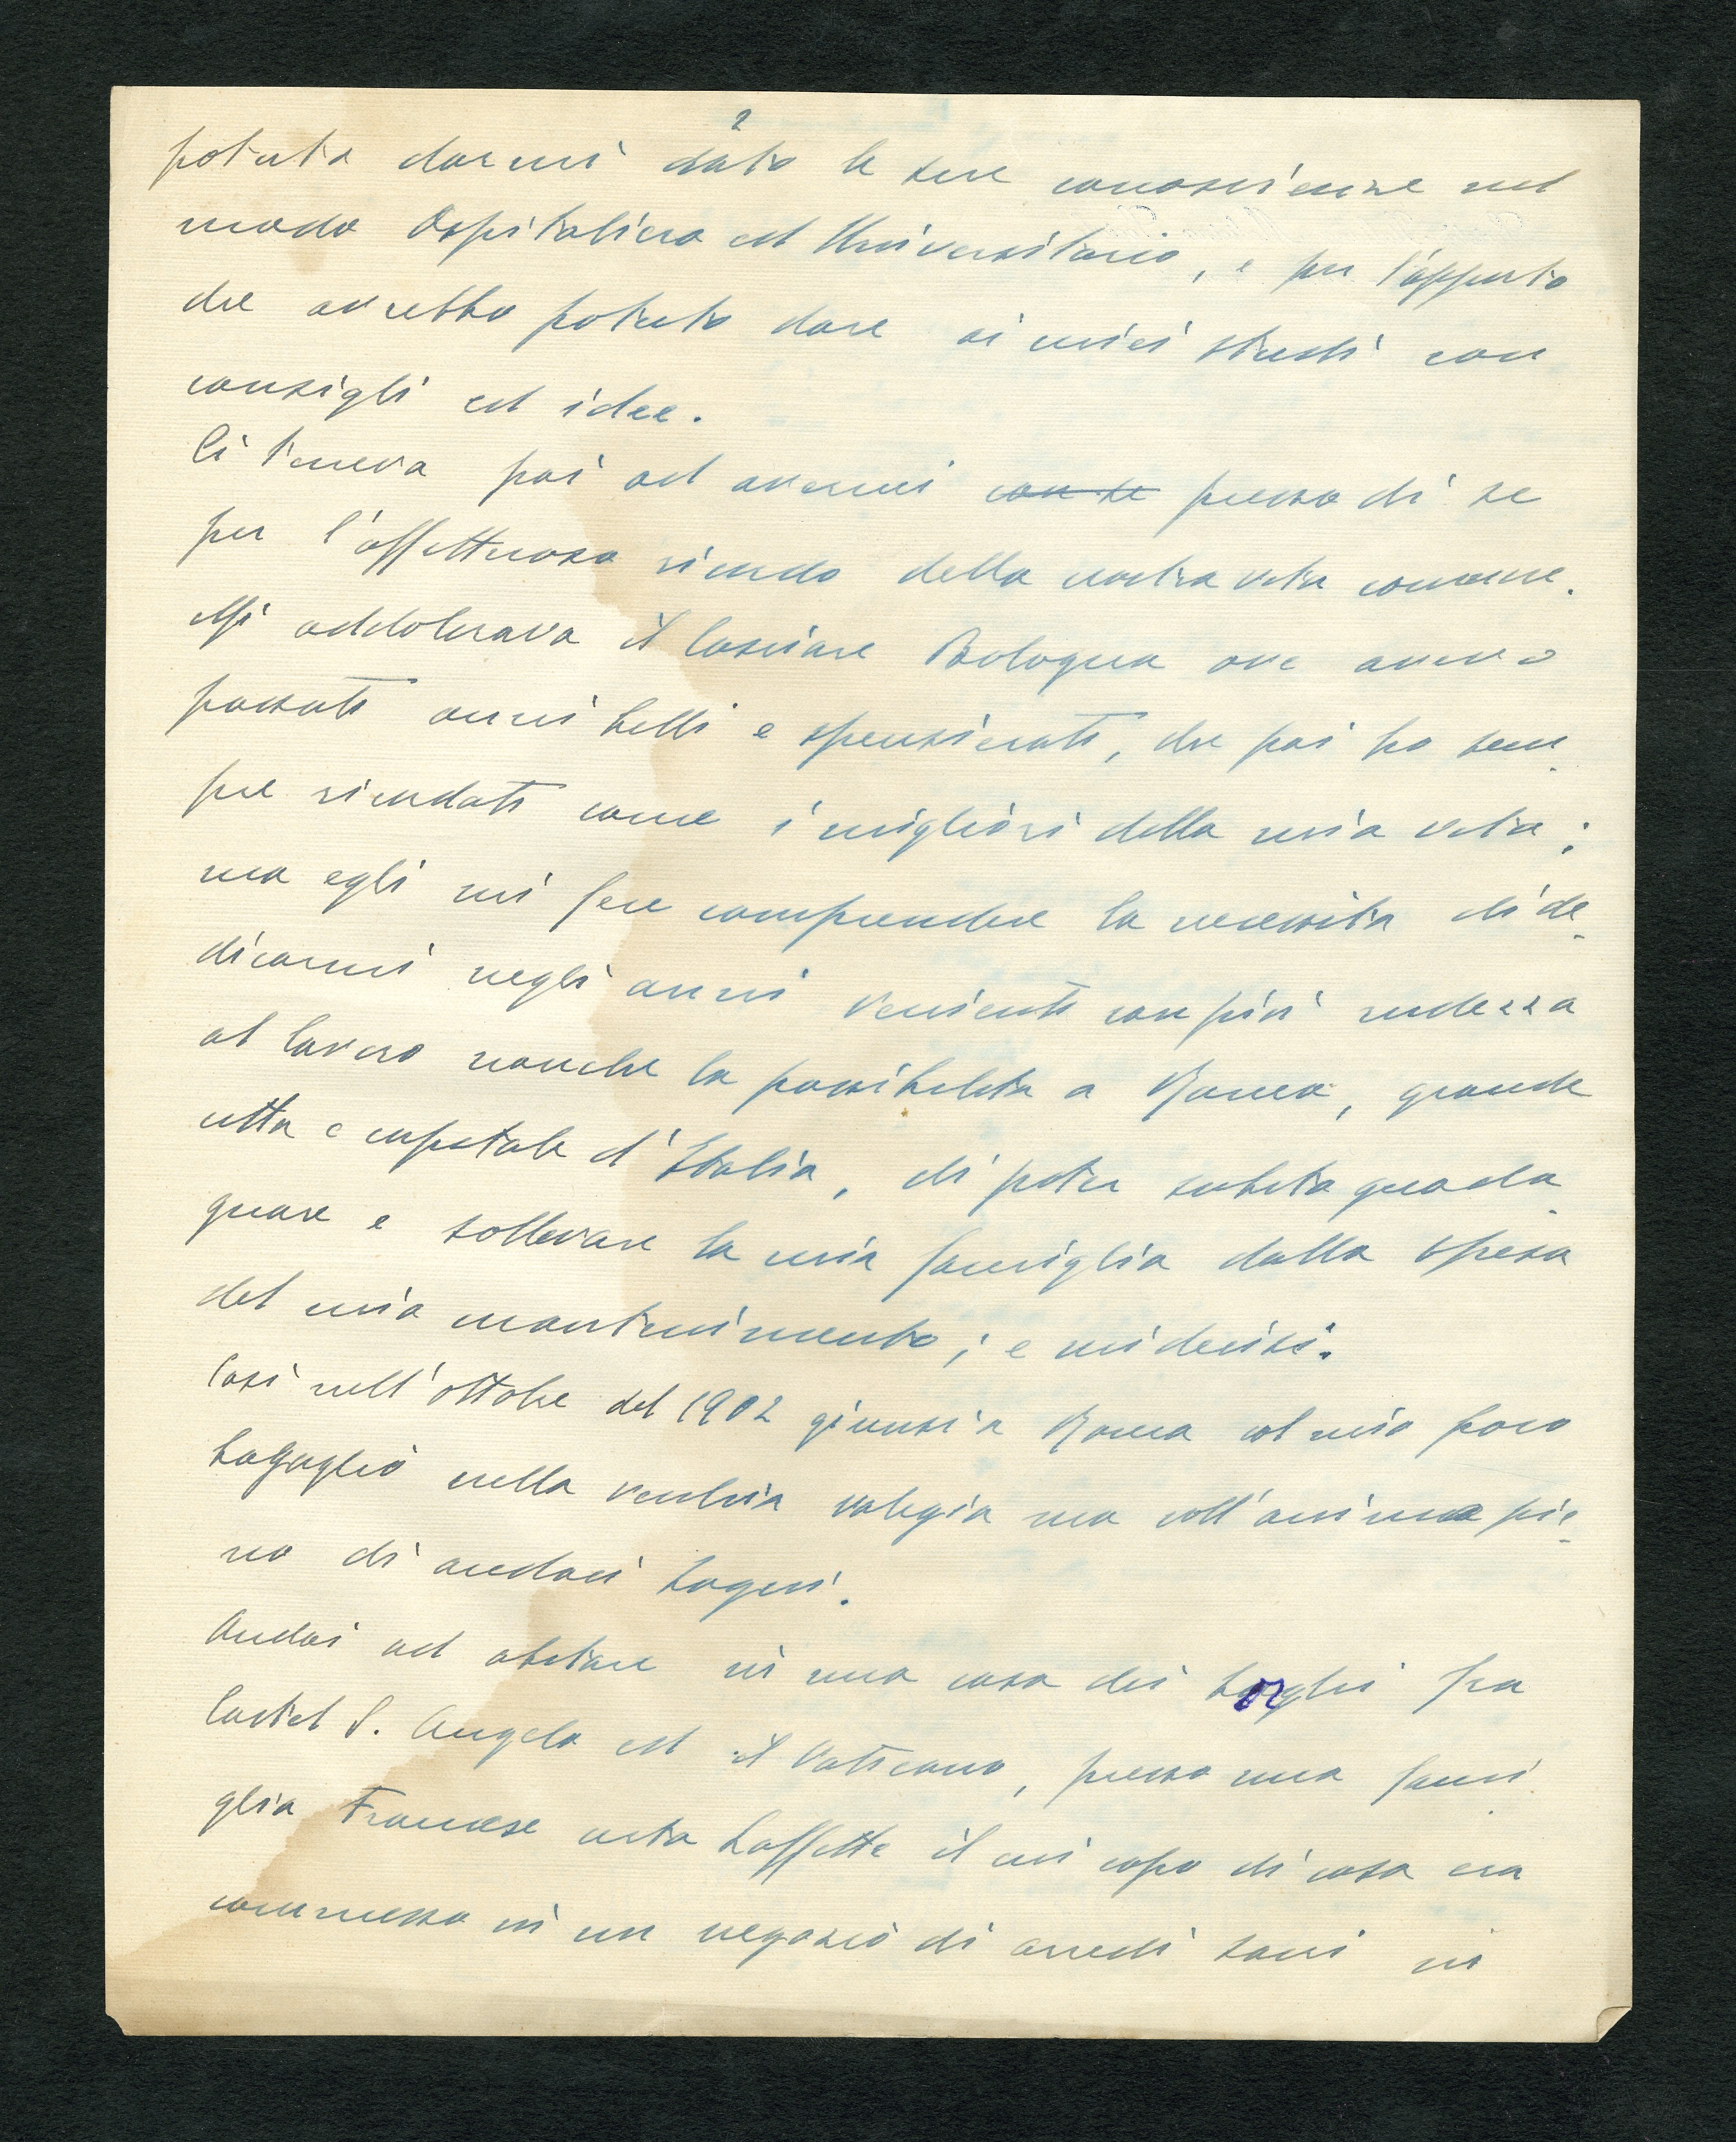 2
potuto darmi dato le sue conoscienze nel
modo Ospitaliero ed Universitario, e per l'apporto
che avrebbe potuto dare ai miei studi con
consigli ed idee.
Ci teneva poi ad avermi con se presso di se
per l'affettuoso ricordo della nostra vita comune.
Mi addolorava il lasciare Bologna ove avevo
passati anni belli e spensierati, che poi ho sem-
pre ricordati come i migliori della mia vita;
ma egli mi fece comprendere la necessita di de-
dicarmi negli anni venienti con più sodezza
al lavoro nonche la possibilita a Roma, grande
citta e capitale d'Italia, di poter subito guada-
gnare e sollevare la mia famiglia dalla spesa
del mio mantenimento; e mi decisi.
Così nell'ottobre del 1902 giunsi a Roma col mio poco
bagaglio nella vecchia valigia ma coll'animo pie-
no di audaci sogni.
Andai ad abitare in una casa dei borghi fra
Castel S. Angelo ed il Vaticano, presso una fami-
glia Francese certa Laffitte il cui capo di casa era
commesso in un negozio di arredi sacri in